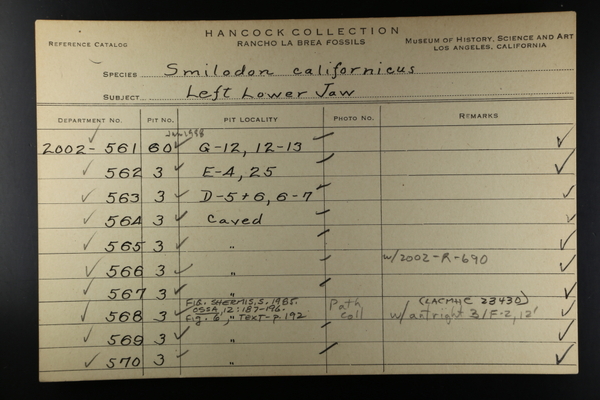 HANCOCK COLLECTION
REFERENCE CATALOG RANCHO LA BREA FOSSILS MUSEUM OF HISTORY, SCIENCE AND ART
LOS ANGELES, CALIFORNIA
SPECIES Smilodon californicus
SUBJECT Left Lower Jaw
DEPARTMENT NO. PIT NO. PIT LOCALITY PHOTO NO. REMARKS
2002-561 60 G-12, 12-13
562 3 E-4, 25
563 3 D-5+6, 6-7
564 3 Caved
565 3 "
566 3 " w/2002-R-690
567 3 "
FIG. SHERMIS, S. 1985. Path (LACMHC 23430)
568 3 OSSA, 12:187-196. Coll w/ant right 31F-2, 12'
Fig. 6, " TEXT-p. 192
569 3 "
570 3 "